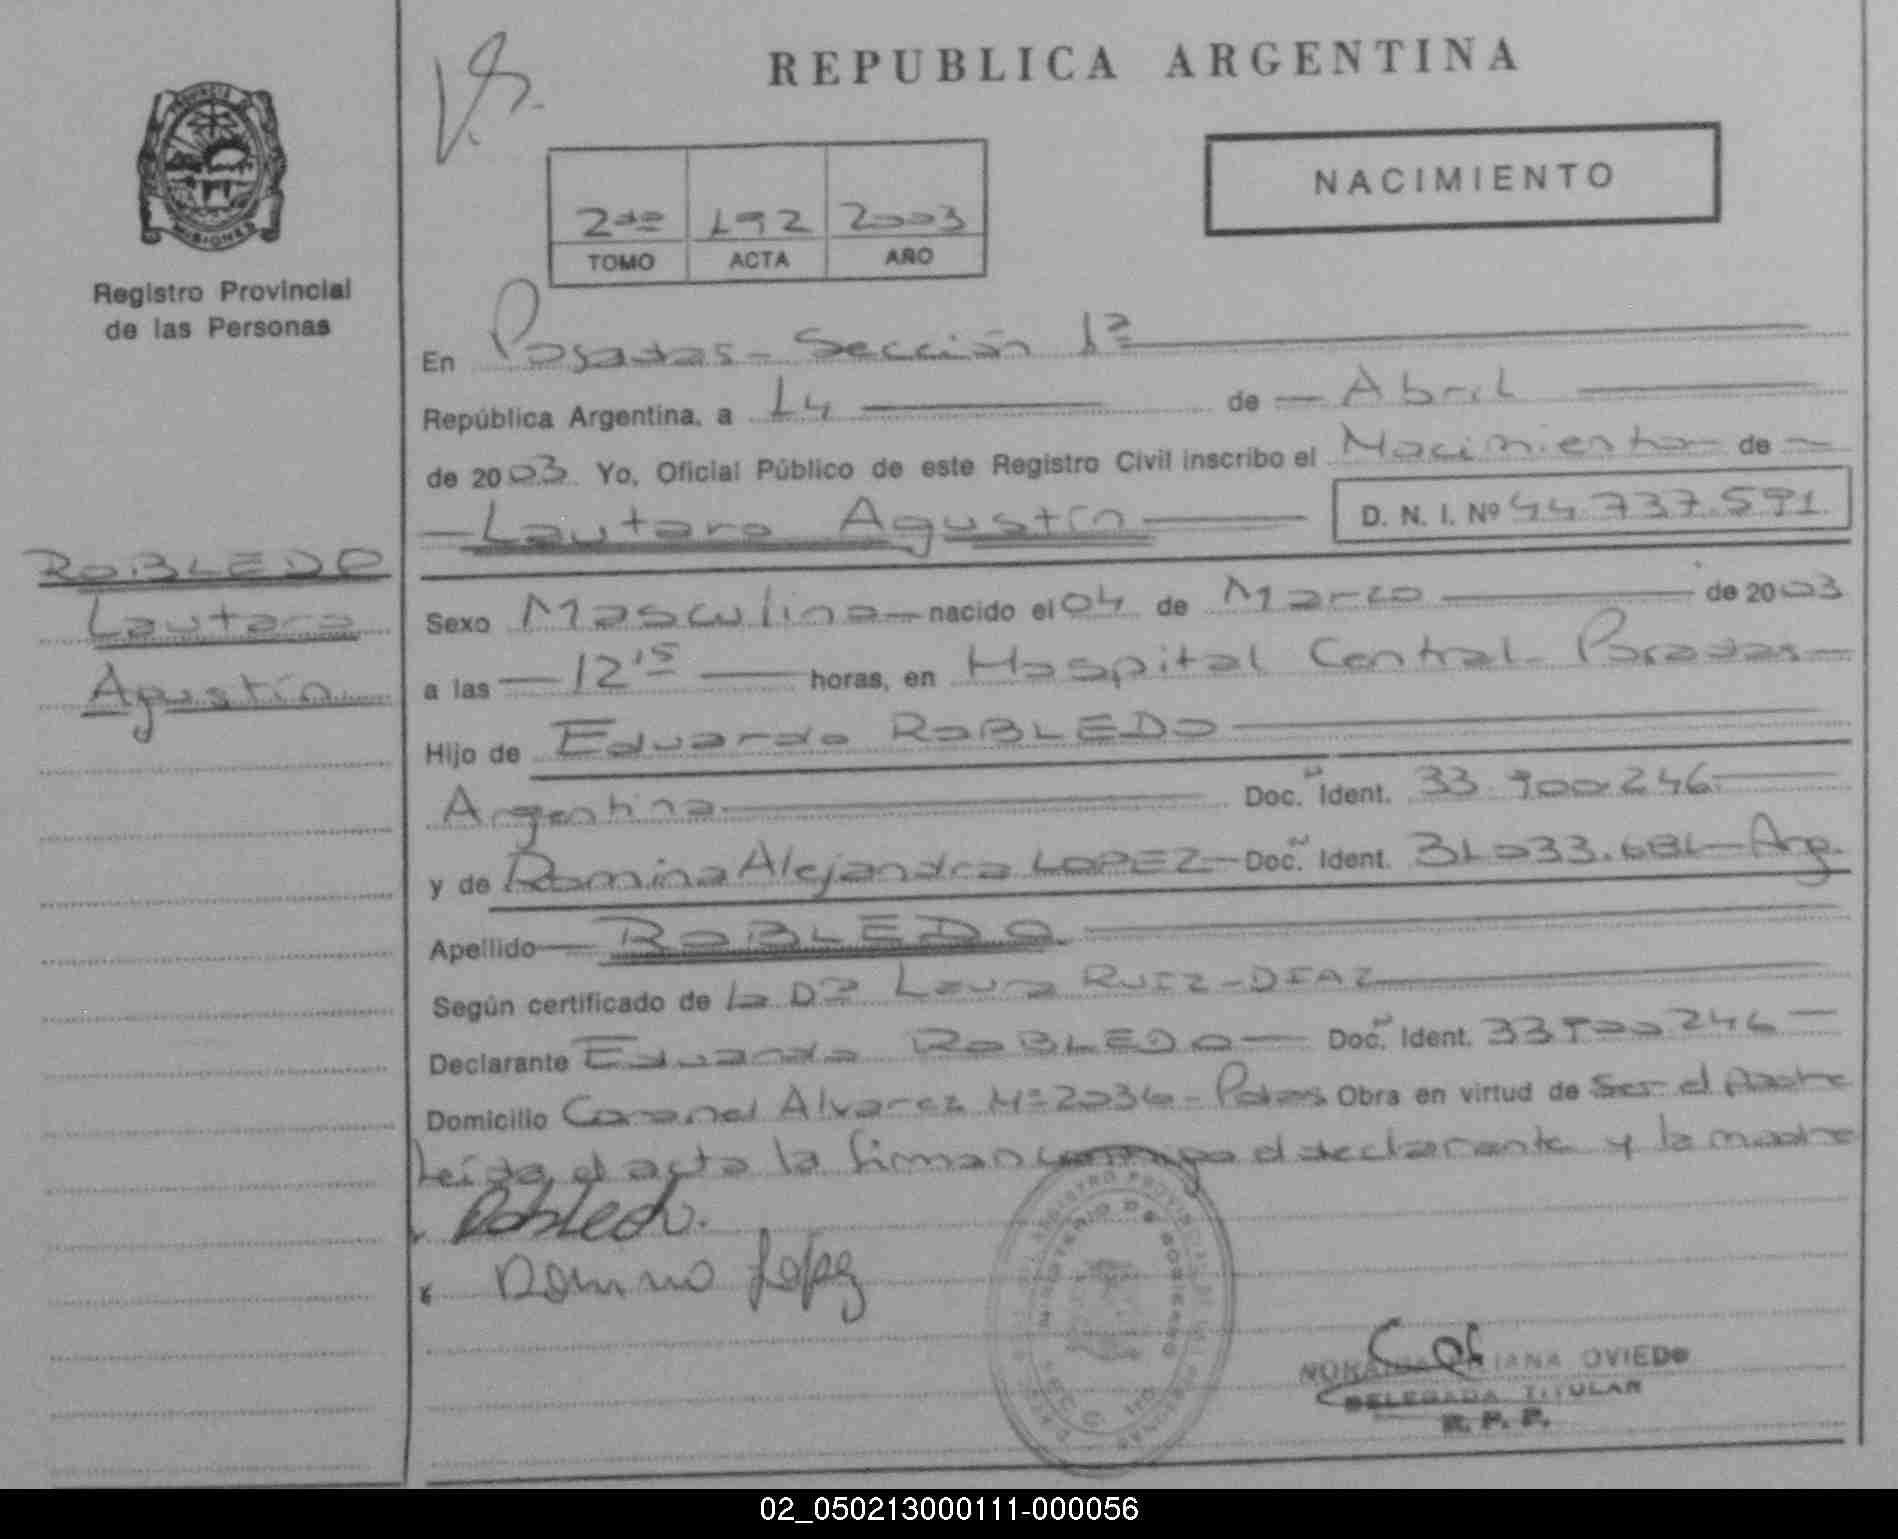 REPUBLICA ARGENTINA
PROVINCIA DE
MISIONES
Registro Provincial
de las Personas
NACIMIENTO
2do 192 2003
TOMO ACTA AÑO
En Posadas - Sección 1ª
República Argentina, a 14 de Abril
de 2003. Yo, Oficial Público de este Registro Civil inscribo el Nacimiento de
Lautaro Agustín D. N. I. Nº 44.737.591
ROBLEDO
Lautaro
Agustín
Sexo Masculino nacido el 04 de Marzo de 2003
a las 12 15 horas, en Hospital Central - Posadas
Hijo de Eduardo ROBLEDO
Argentina Doc. Ident. 33.900.246
y de Romina Alejandra LOPEZ Doc. Ident. 31.033.681 - Arg.
Apellido ROBLEDO
Según certificado de la Dª Laura RUIZ-DIAZ
Declarante Eduardo ROBLEDO Doc. Ident. 33.900.246
Domicilio Coronel Alvarez Nº 2036 - Pdas Obra en virtud de ser el padre
Leída el acta la firman conmigo el declarante y la madre
Robledo.
Romina Lopez
MINISTERIO DE GOBIERNO
OVIEDO
DELEGADA TITULAR
R. P. P.
02_050213000111-000056